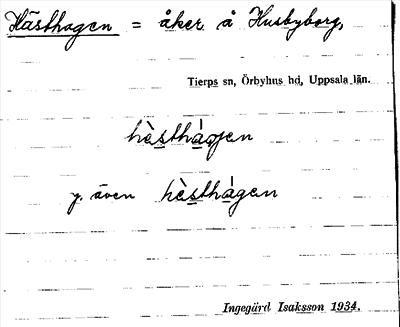 Hästhagen = åker å Husbyborg,
Tierps sn, Örbyhus hd, Uppsala län.
hèsthágen
y. även hèsthágen
Ingegärd Isaksson 1934.